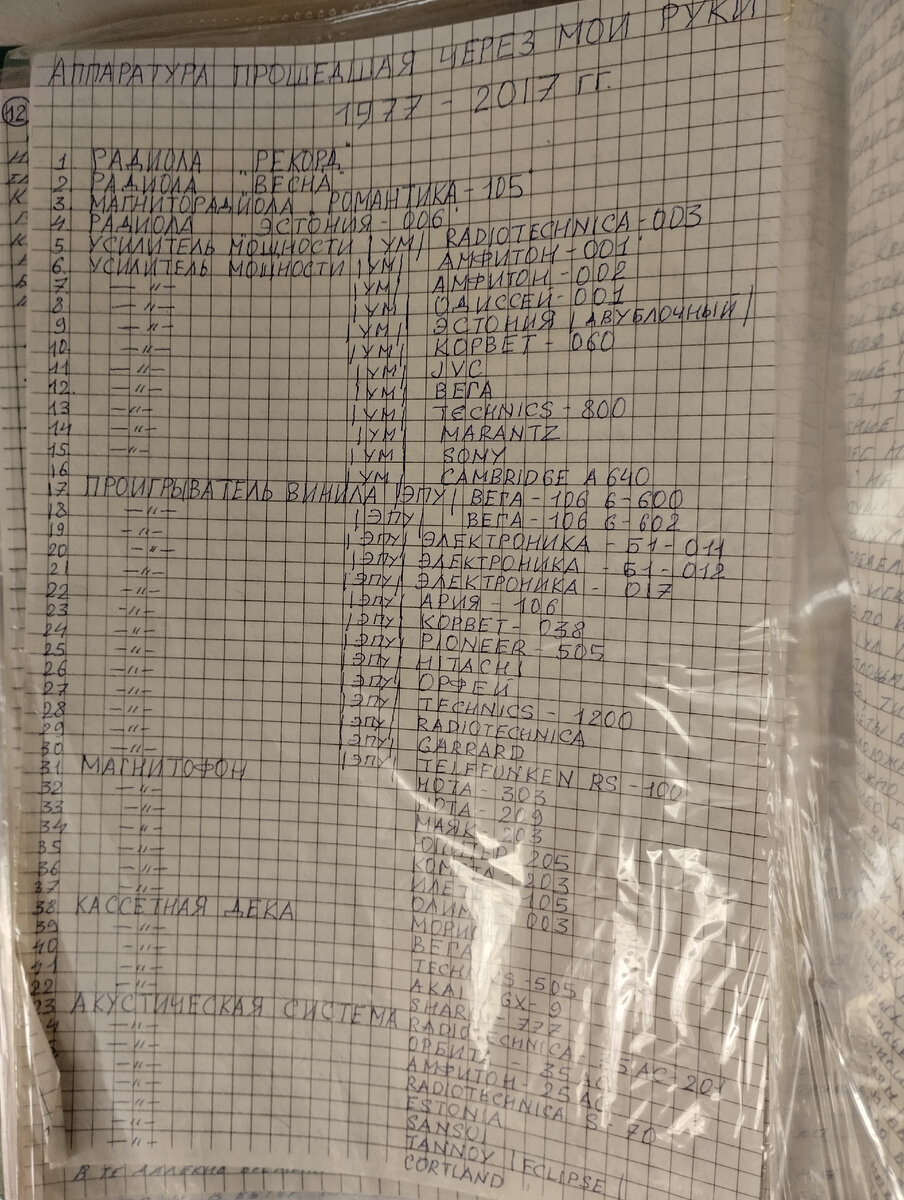 АППАРАТУРА ПРОШЕДШАЯ ЧЕРЕЗ МОИ РУКИ
1977 - 2017 ГГ.
12
1 РАДИОЛА "РЕКОРД"
2. РАДИОЛА "ВЕСНА"
3. МАГНИТОРАДИОЛА "РОМАНТИКА - 105"
4 РАДИОЛА "ЭСТОНИЯ - 006"
5 УСИЛИТЕЛЬ МОЩНОСТИ |УМ| RADIOTECHNICA - 003
6. УСИЛИТЕЛЬ МОЩНОСТИ |УМ| АМФИТОН - 001
7 —"— |УМ| АМФИТОН - 002
8 —"— |УМ| ОДИССЕЙ - 001
9 —"— |УМ| ЭСТОНИЯ |ДВУБЛОЧНЫЙ|
10 —"— |УМ| КОРВЕТ - 060
11 —"— |УМ| JVC
12. —"— |УМ| ВЕГА
13 —"— |УМ| TECHNICS - 800
14 —"— |УМ| MARANTZ
15 —"— |УМ| SONY
16 |УМ| CAMBRIDGE A 640
17 ПРОИГРЫВАТЕЛЬ ВИНИЛА |ЭПУ| ВЕГА - 106 6-600
18 —"— |ЭПУ| ВЕГА - 106 6-602
19 —"— |ЭПУ| ЭЛЕКТРОНИКА - Б1 - 011
20 —"— |ЭПУ| ЭЛЕКТРОНИКА - Б1 - 012
21 —"— |ЭПУ| ЭЛЕКТРОНИКА - 017
22 —"— |ЭПУ| АРИЯ - 106
23 —"— |ЭПУ| КОРВЕТ - 038
24 —"— |ЭПУ| PIONEER - 505
25 —"— |ЭПУ| HITACHI
26 —"— |ЭПУ| ОРФЕЙ
27 —"— |ЭПУ| TECHNICS - 1200
28 —"— |ЭПУ| RADIOTECHNICA
29 —"— |ЭПУ| GARRARD
30 —"— |ЭПУ| TELEFUNKEN RS - 100
31 МАГНИТОФОН НОТА - 303
32 —"— НОТА - 209
33 —"— МАЯК - 203
34 —"— 205
35 —"— 203
36 —"— 105
37 —"— 003
38 КАССЕТНАЯ ДЕКА
39 —"— ВЕГА
40 —"— -505
41 —"— AKAI GX - 9
22 —"— SHARP - 777
23 АКУСТИЧЕСКАЯ СИСТЕМА RADIOTECHNICA - АС - 201
—"— ОРБИТА - 35 АС
—"— АМФИТОН - 25 АС
—"— RADIOTECHNICA S - 70
—"— ESTONIA
—"— SANSUI
—"— TANNOY |ECLIPSE|
—"— CORTLAND
В ТЕ ДАЛЕКИЕ